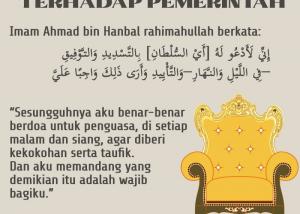 TERHADAP PEMERINTAH
Imam Ahmad bin Hanbal rahimahullah berkata:
إِنِّي لَأَدْعُو لَهُ [أَيْ السُّلْطَانِ] بِالتَّسْدِيدِ وَالتَّوْفِيقِ
–فِي اللَّيْلِ وَالنَّهَارِ–وَالتَّأْيِيدِ وَأَرَى ذَلِكَ وَاجِبًا عَلَيَّ
“Sesungguhnya aku benar-benar
berdoa untuk penguasa, di setiap
malam dan siang, agar diberi
kekokohan serta taufik.
Dan aku memandang yang
demikian itu adalah wajib
bagiku.”